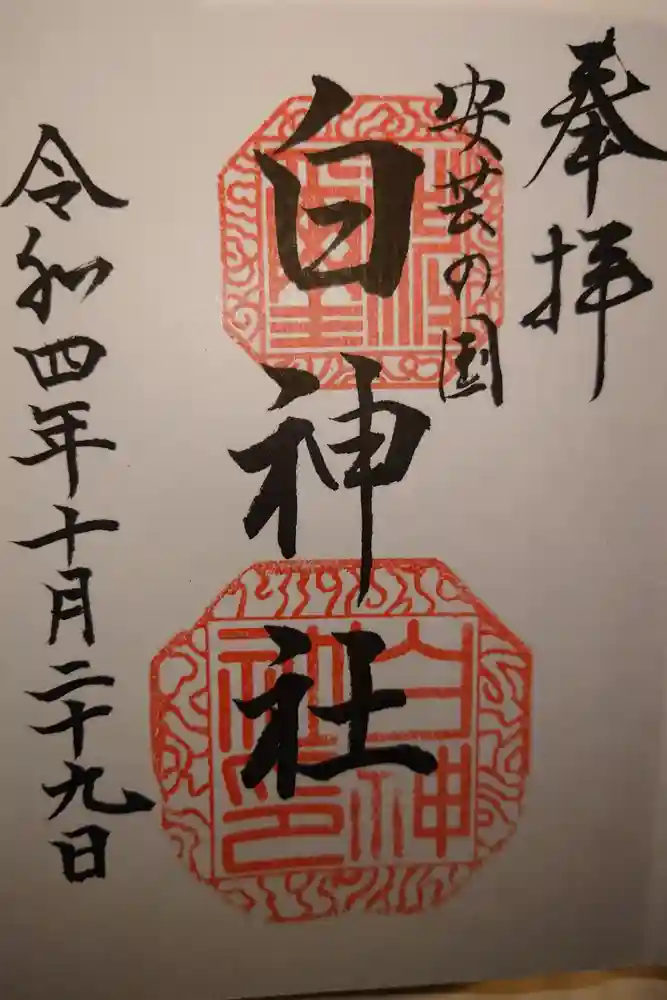 奉拝
安芸の国
白神社
令和四年十月二十九日
白神
社印